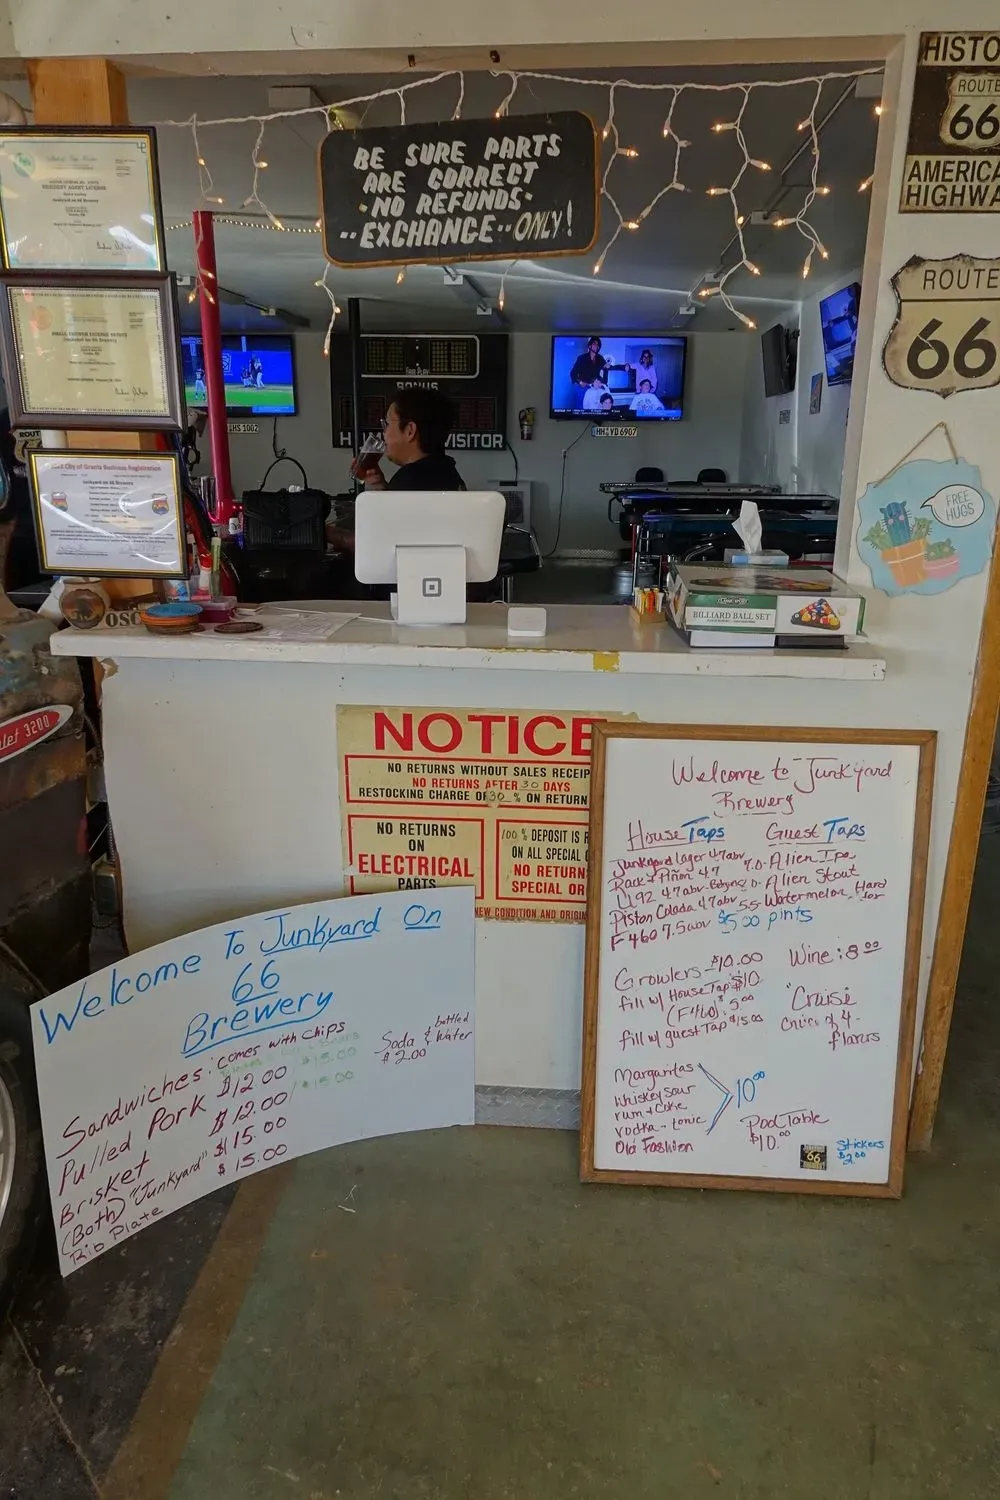 BE SURE PARTS
ARE CORRECT
·NO REFUNDS·
··EXCHANGE··ONLY!
HISTO
ROUTE
66
AMERICA
HIGHWA
ROUTE
66
FREE
HUGS
RESIDENT AGENT LICENSE
SMALL BREWER LICENSE
City of Grants Business Registration
FAIR PLAY
BONUS
VISITOR
HS 1002
HH VD 6907
BILLIARD BALL SET
OSC
let 3200
NOTICE
NO RETURNS WITHOUT SALES RECEIP
NO RETURNS AFTER 30 DAYS
RESTOCKING CHARGE OF 30 % ON RETURN
NO RETURNS
ON
ELECTRICAL
PARTS
100 % DEPOSIT IS R
ON ALL SPECIAL
NO RETURN
SPECIAL OR
NEW CONDITION AND ORIGIN
Welcome To Junkyard On
66
Brewery
Sandwiches: comes with chips
Pulled Pork $12.00
Brisket $12.00
(Both) "Junkyard" $15.00
Rib Plate $15.00
$13.00
$15.00
Soda & bottled Water
$2.00
Welcome to Junkyard
Brewery
House Taps
Junkyard lager 4.7abv
Rack + Piñon 4.7
L192 4.7abv
Piston Colada 4.7abv
F460 7.5abv
Guest Taps
7.0-Alien Ipa
Alien Stout
5.5 Watermelon Hard
$5.00 pints
Growlers-$10.00
fill w/ House Tap $10
(F460): 5.00
fill w/ guest Tap $15.00
Wine: 8.00
"Cruise
4-
flavors
Margaritas
Whiskey sour
rum + Coke
vodka - tonic
Old Fashion
10.00
Pool Table
$10.00
66
Stickers
$2.00